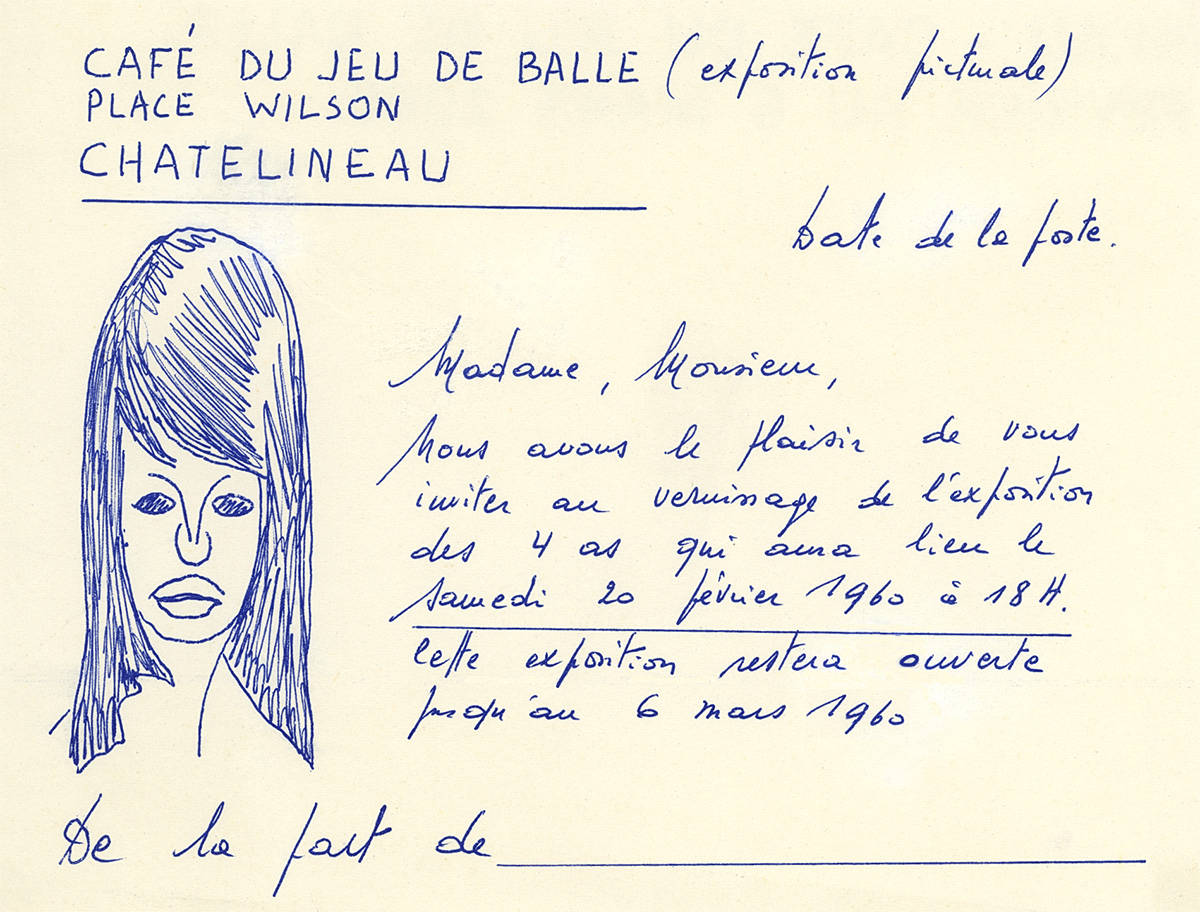 CAFÉ DU JEU DE BALLE (exposition picturale)
PLACE WILSON
CHATELINEAU
Date de la poste.
Madame, Monsieur,
Nous avons le plaisir de vous
inviter au vernissage de l'exposition
des 4 as qui aura lieu le
samedi 20 février 1960 à 18 H.
Cette exposition restera ouverte
jusqu'au 6 mars 1960
De la part de